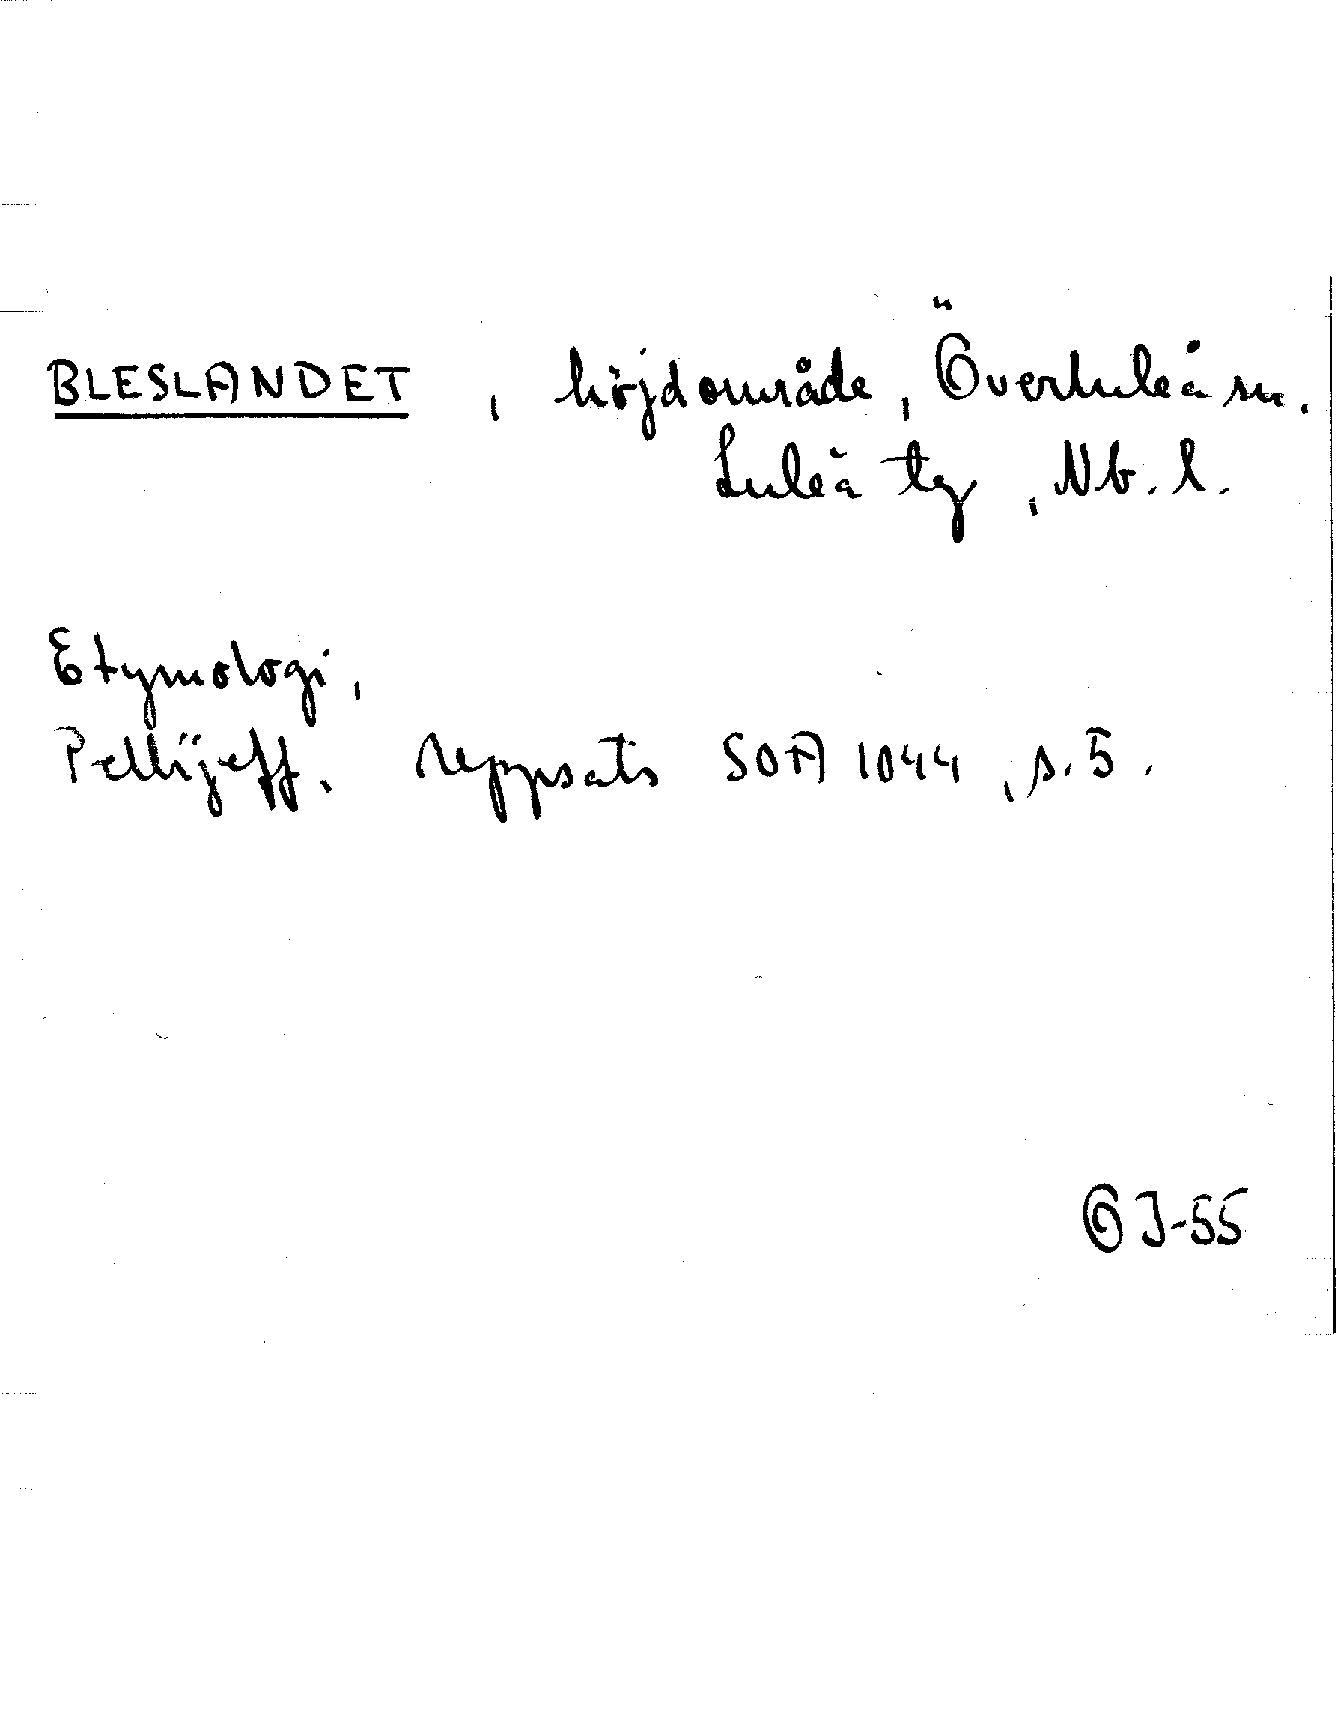 BLESLANDET, höjdområde, Överluleå sn.
Luleå tg, Nb. l.
Etymologi,
Pellijeff. uppsats SOA 1044, s. 5.
J-55